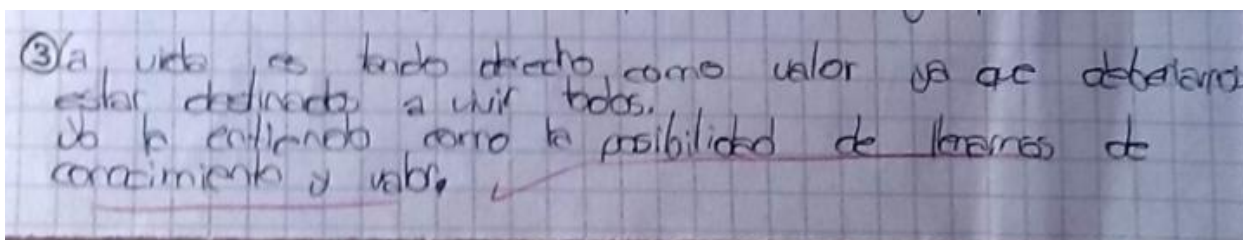 ③ La vida es tando derecho, como valor ya qe deberiamos
estar destinados a vivir todos.
Yo la entiendo como la posibilidad de llenarnos de
conocimiento y valor.